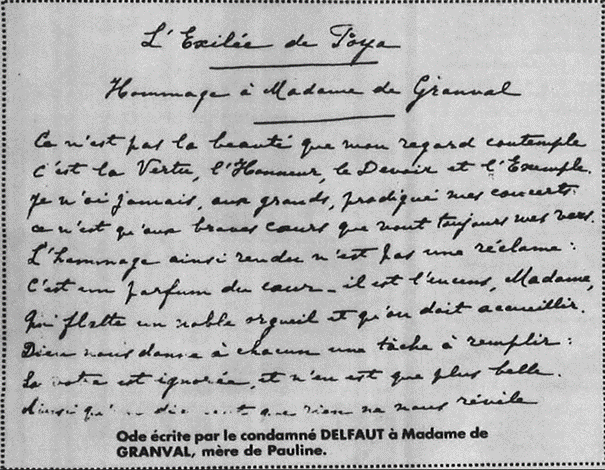 L'Exilée de Poya
Hommage à Madame de Granval
Ce n'est pas la beauté que mon regard contemple
C'est la Vertu, l'Honneur, le Devoir et l'Exemple.
Je n'ai jamais, aux grands, prodigué mes concerts.
Ce n'est qu'aux braves cœurs que vont toujours mes vers.
L'hommage ainsi rendu n'est pas une réclame :
C'est un parfum du cœur - il est l'encens, Madame,
Qui flatte un noble orgueil et qu'on doit accueillir.
Dieu nous donne à chacun une tâche à remplir :
La votre est ignorée, et n'en est que plus belle.
Ainsi qu'un que rien ne nous révèle
Ode écrite par le condamné DELFAUT à Madame de
GRANVAL, mère de Pauline.